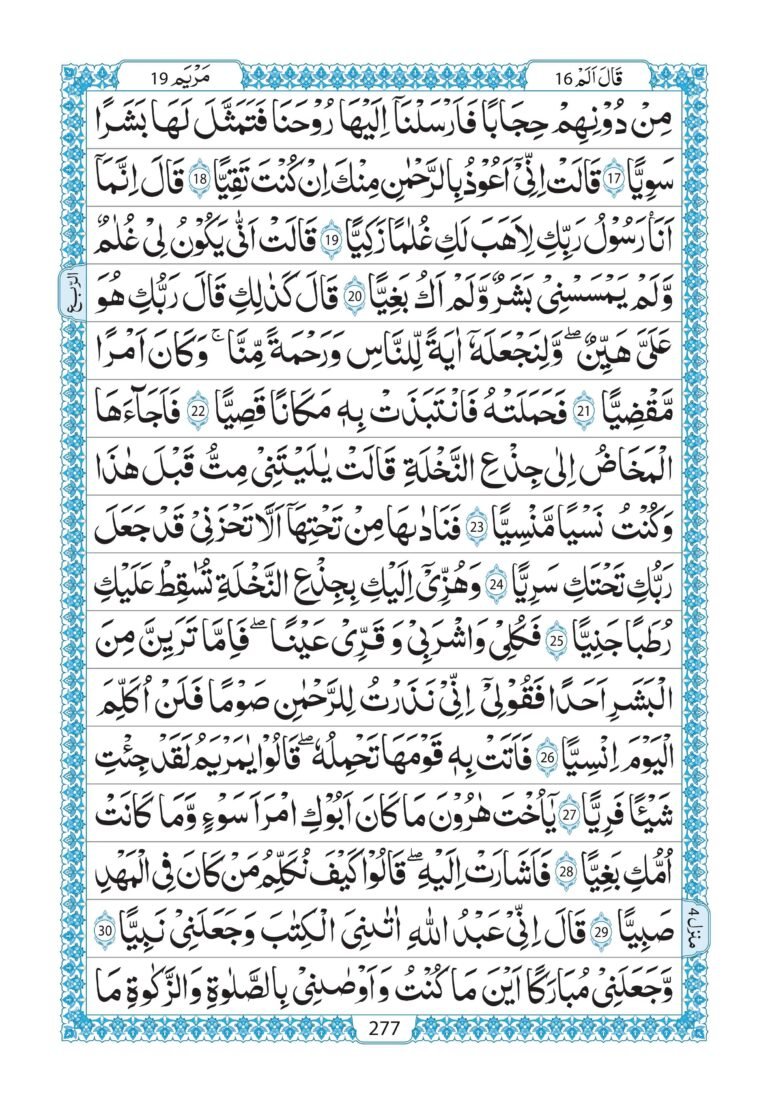 قَالَ اَلَمْ 16
مَرْيَم 19
مِنْ دُوْنِهِمْ حِجَابًا فَاَرْسَلْنَاۤ اِلَيْهَا رُوْحَنَا فَتَمَثَّلَ لَهَا بَشَرًا
سَوِيًّا 17 قَالَتْ اِنِّىْۤ اَعُوْذُ بِالرَّحْمٰنِ مِنْكَ اِنْ كُنْتَ تَقِيًّا 18 قَالَ اِنَّمَاۤ
اَنَا۠ رَسُوْلُ رَبِّكِ لِاَهَبَ لَكِ غُلٰمًا زَكِيًّا 19 قَالَتْ اَنّٰى يَكُوْنُ لِىْ غُلٰمٌ
الرّبع
وَّلَمْ يَمْسَسْنِىْ بَشَرٌ وَّلَمْ اَكُ بَغِيًّا 20 قَالَ كَذٰلِكِ قَالَ رَبُّكِ هُوَ
عَلَىَّ هَيِّنٌ ۖ وَلِنَجْعَلَهٗۤ اٰيَةً لِّلنَّاسِ وَرَحْمَةً مِّنَّا ۚ وَكَانَ اَمْرًا
مَّقْضِيًّا 21 فَحَمَلَتْهُ فَانْتَبَذَتْ بِهٖ مَكَانًا قَصِيًّا 22 فَاَجَآءَهَا
الْمَخَاضُ اِلٰى جِذْعِ النَّخْلَةِ قَالَتْ يٰلَيْتَنِىْ مِتُّ قَبْلَ هٰذَا
وَكُنْتُ نَسْيًا مَّنْسِيًّا 23 فَنَادٰىهَا مِنْ تَحْتِهَاۤ اَلَّا تَحْزَنِىْ قَدْ جَعَلَ
رَبُّكِ تَحْتَكِ سَرِيًّا 24 وَهُزِّىْۤ اِلَيْكِ بِجِذْعِ النَّخْلَةِ تُسٰقِطْ عَلَيْكِ
رُطَبًا جَنِيًّا 25 فَكُلِىْ وَاشْرَبِىْ وَقَرِّىْ عَيْنًا ۖ فَاِمَّا تَرَيِنَّ مِنَ
الْبَشَرِ اَحَدًا فَقُوْلِىْۤ اِنِّىْ نَذَرْتُ لِلرَّحْمٰنِ صَوْمًا فَلَنْ اُكَلِّمَ
الْيَوْمَ اِنْسِيًّا 26 فَاَتَتْ بِهٖ قَوْمَهَا تَحْمِلُهٗ ۖ قَالُوْا يٰمَرْيَمُ لَقَدْ جِئْتِ
شَيْئًا فَرِيًّا 27 يٰۤاُخْتَ هٰرُوْنَ مَا كَانَ اَبُوْكِ امْرَاَ سَوْءٍ وَّمَا كَانَتْ
اُمُّكِ بَغِيًّا 28 فَاَشَارَتْ اِلَيْهِ ۖ قَالُوْا كَيْفَ نُكَلِّمُ مَنْ كَانَ فِى الْمَهْدِ
صَبِيًّا 29 قَالَ اِنِّىْ عَبْدُ اللّٰهِ اٰتٰىنِىَ الْكِتٰبَ وَجَعَلَنِىْ نَبِيًّا 30
منزل 4
وَّجَعَلَنِىْ مُبَارَكًا اَيْنَ مَا كُنْتُ وَاَوْصٰنِىْ بِالصَّلٰوةِ وَالزَّكٰوةِ مَا
277